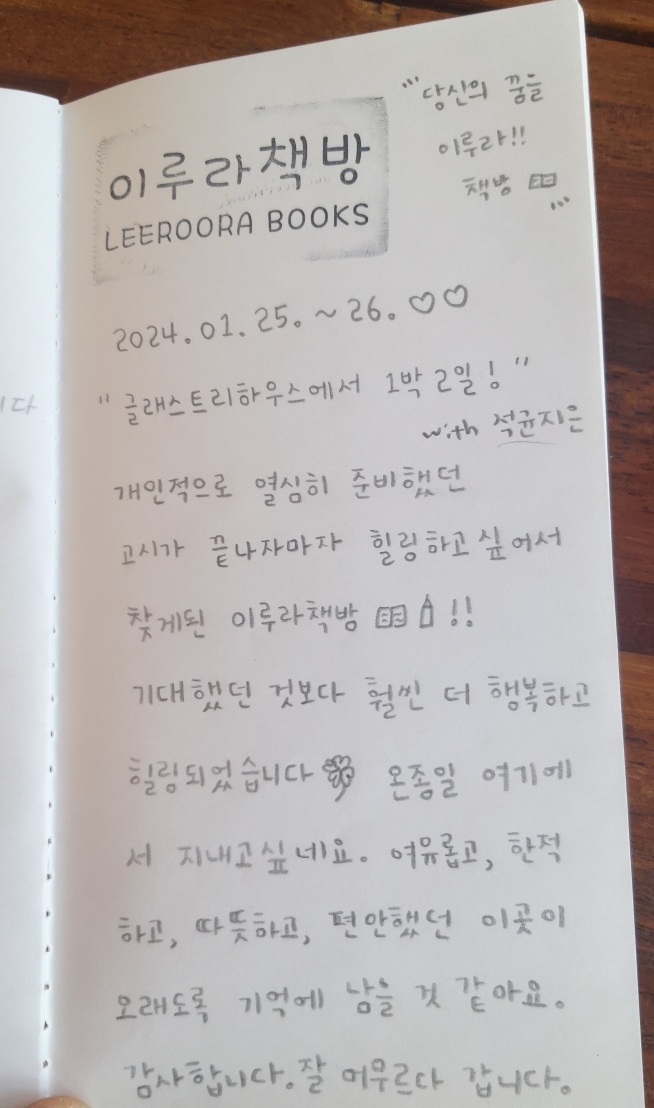 이루라책방
LEEROORA BOOKS
''' 당신의 꿈을
이루라!!
책방
'''
2024.01.25.~26.♡♡
"글래스트리하우스에서 1박2일!"
with 석균지은
개인적으로 열심히 준비했던
고시가 끝나자마자 힐링하고싶어서
찾게된 이루라책방 !!
기대했던 것보다 훨씬 더 행복하고
힐링되었습니다 온종일 여기에
서 지내고싶네요. 여유롭고, 한적
하고, 따뜻하고, 편안했던 이곳이
오래도록 기억에 남을 것 같아요.
감사합니다.잘 머무르다 갑니다.